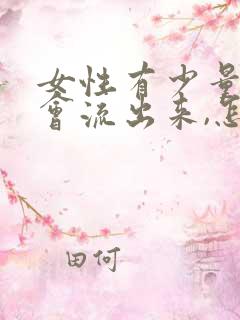 女性有少量
會流出来,怎
田何